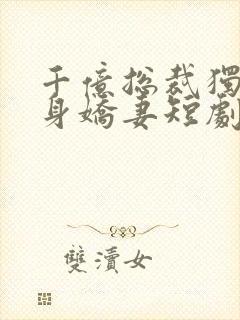 千億總裁獨
身嬌妻短劇
雙瀆女